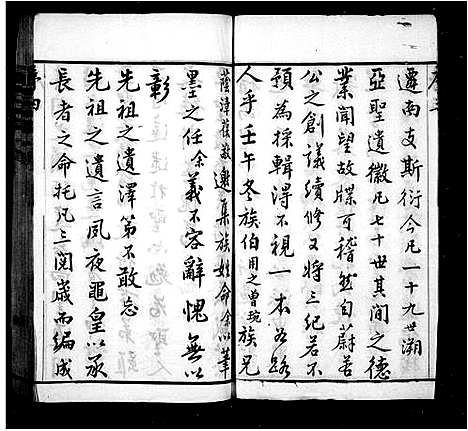 遷南支斯衍今凡一十九世溯
亞聖遺徽凡七十世其間之德
業聞望故牒可稽然自蔚若
公之創議續修又將三紀若不
預為採輯得不視一本為路
人乎壬午冬族伯用之曾琬族兄
蔭漳葆敬邀集族姓命余以筆
墨之任余義不容辭愧無以
彰
先祖之遺澤第不敢忘
先祖之遺言夙夜黽皇以承
長者之命托凡三閱歲而編成